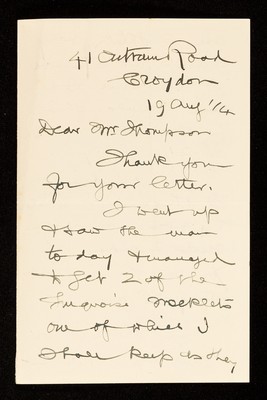 41 Outram Road
Croydon
19 Aug '14
Dear Mr Thompson
Thank you
for your letter.
I went up
& saw the man
to day & managed
to get 2 of the
Turquoise necklets
one of which I
shall keep as they